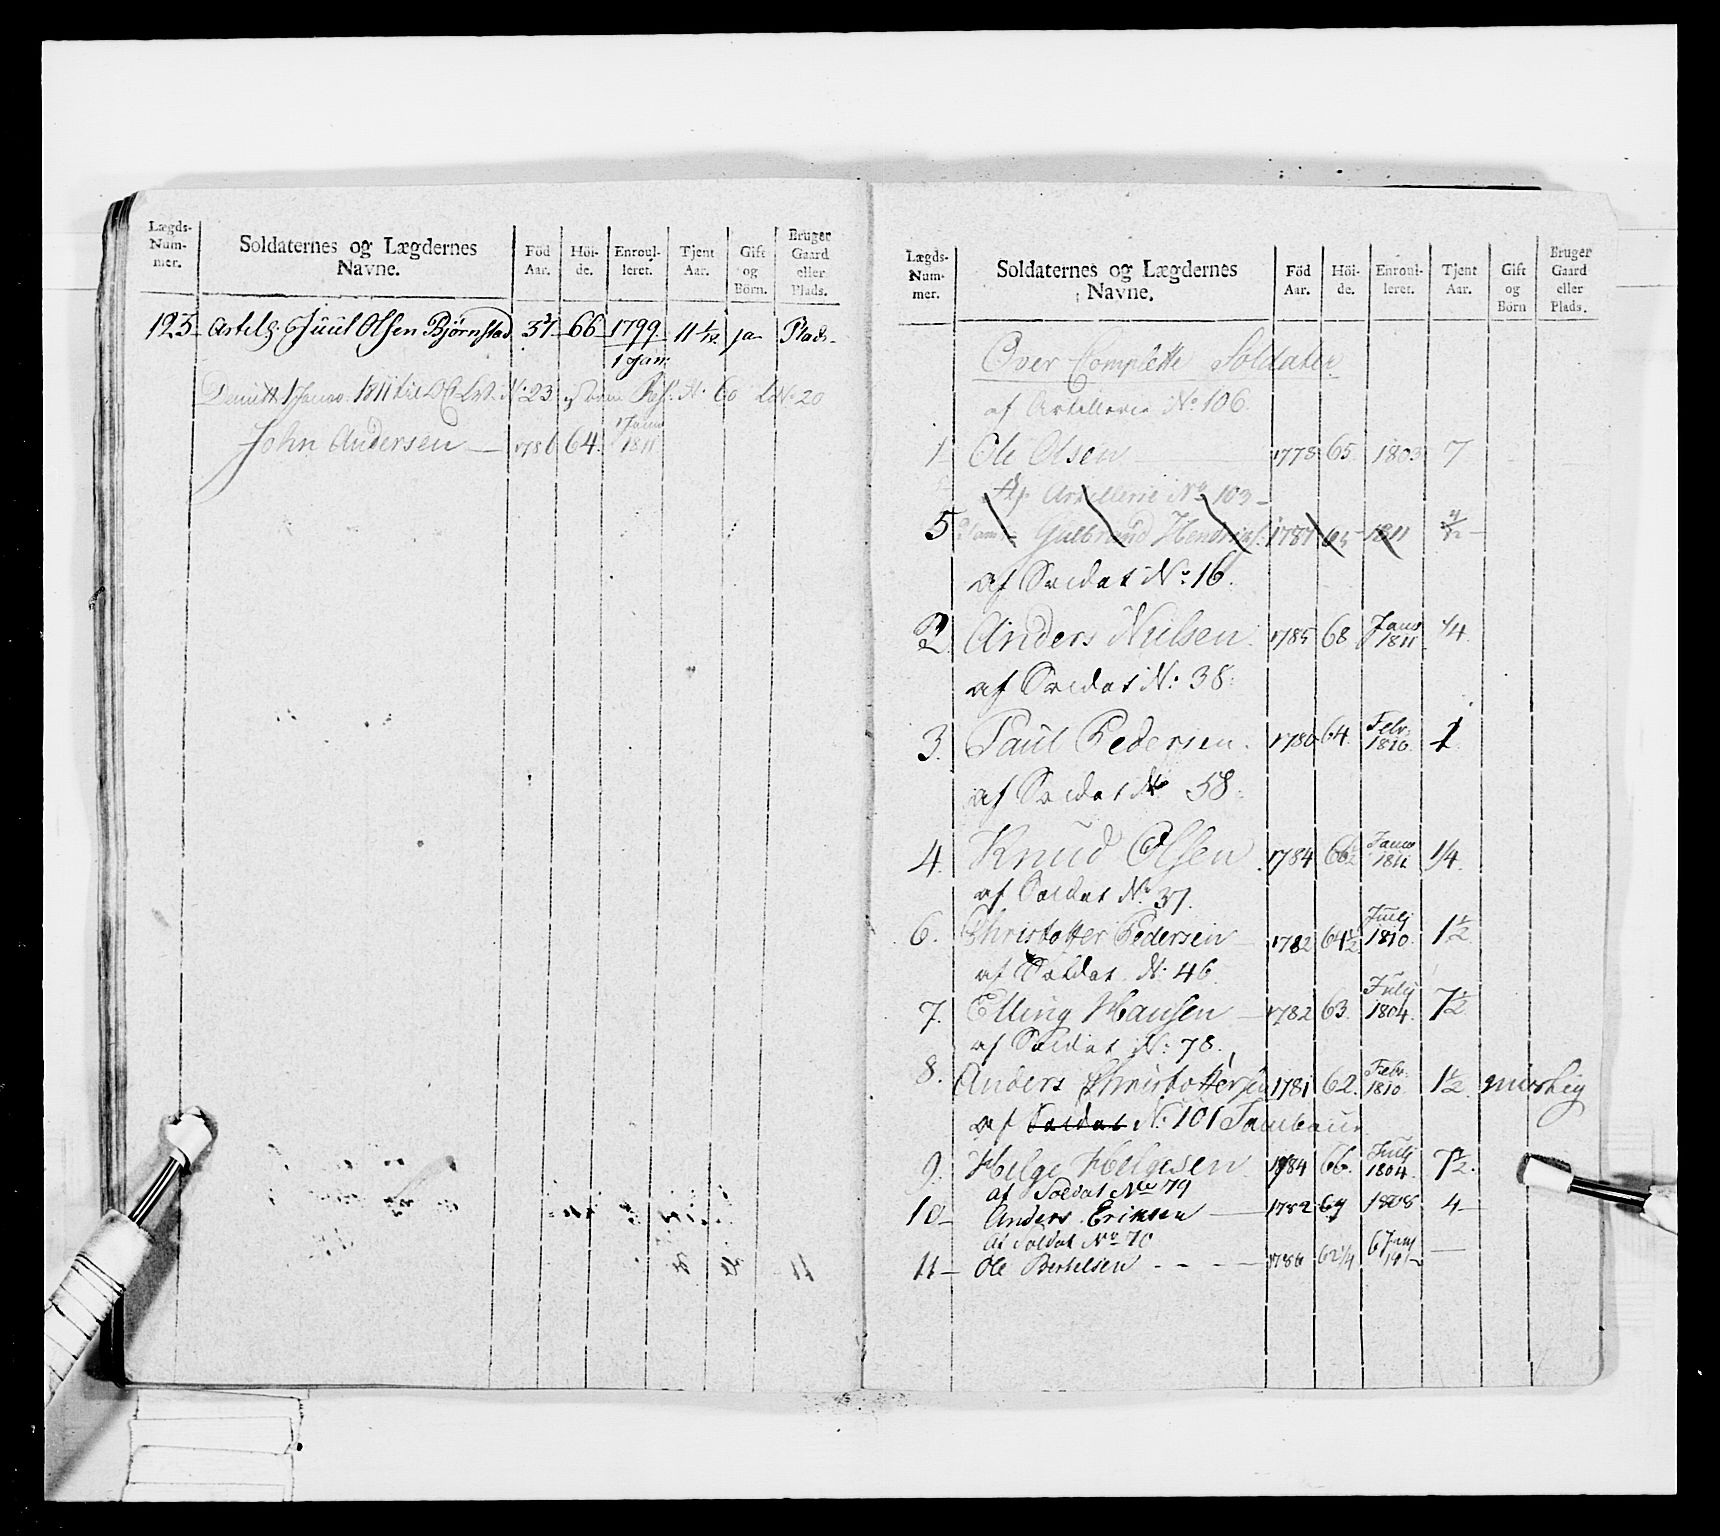 Lægds-Num-mer.
Soldaternes og Lægdernes Navne.
Föd Aar.
Höi-de.
Enroul-leret.
Tjent Aar.
Gift og Börn.
Bruger Gaard eller Plads.
123 Juul Olsen Bjørnstad 37 66 1799 11 ja Plads
1 Jan:
1811 til No 23 No 60 No 20
John Andersen 1786 64 1 Janv 1811
Lægds-Num-mer.
Soldaternes og Lægdernes Navne.
Föd Aar.
Höi-de.
Enroul-leret.
Tjent Aar.
Gift og Börn
Bruger Gaard eller Plads.
Over Complette Soldater
af Artillerie No 106.
1 Ole Olsen 1778 65 1803 7
Af Artillerie No 103
5 Gulbrand Hendrichs. 1787 1811
af Soldat No: 16.
2 Anders Nielsen 1785 68 Janv 1811 1/4
af Soldat N: 38.
3. Paul Pedersen. 1780 64. Febr: 1810. 1
af Soldat No 58.
4. Knud Olsen 1784 66½ Janv 1811 1/4.
af Soldat No 37.
6. Christoffer Pedersen 1782 64½ Julj 1810. 1½
af Soldat N: 46
7. Elling Hansen 1782 63. Julj 1804. 7½
af Soldat N: 78.
8. Anders Christoffersen 1781 62. Febr. 1810. 1½
af Soldat N: 101 Tambour
9. Helge Helgesen 1784 66. Julj 1804. 7½.
af Soldat No 79
10 Anders Eriksen 1782 1808 4
af Soldat No 70
11 Ole Bertelsen 1786 62¼ 6 Juny